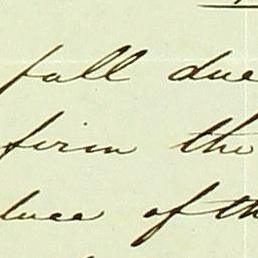 fall due
firm the
luce of th